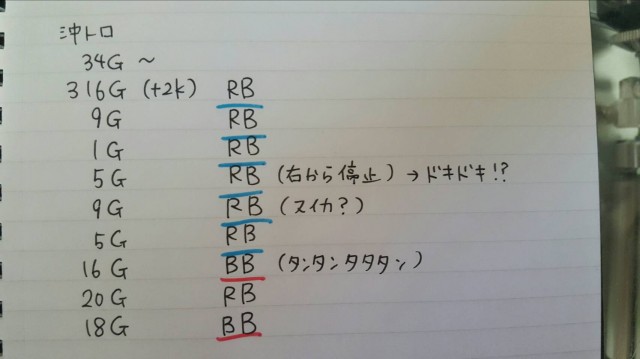 沖トロ
34G ～
316G (+2k) RB
9G RB
1G RB
5G RB (右から停止) → ドキドキ!?
9G RB (スイカ?)
5G RB
16G BB (タンタンタタタン)
20G RB
18G BB